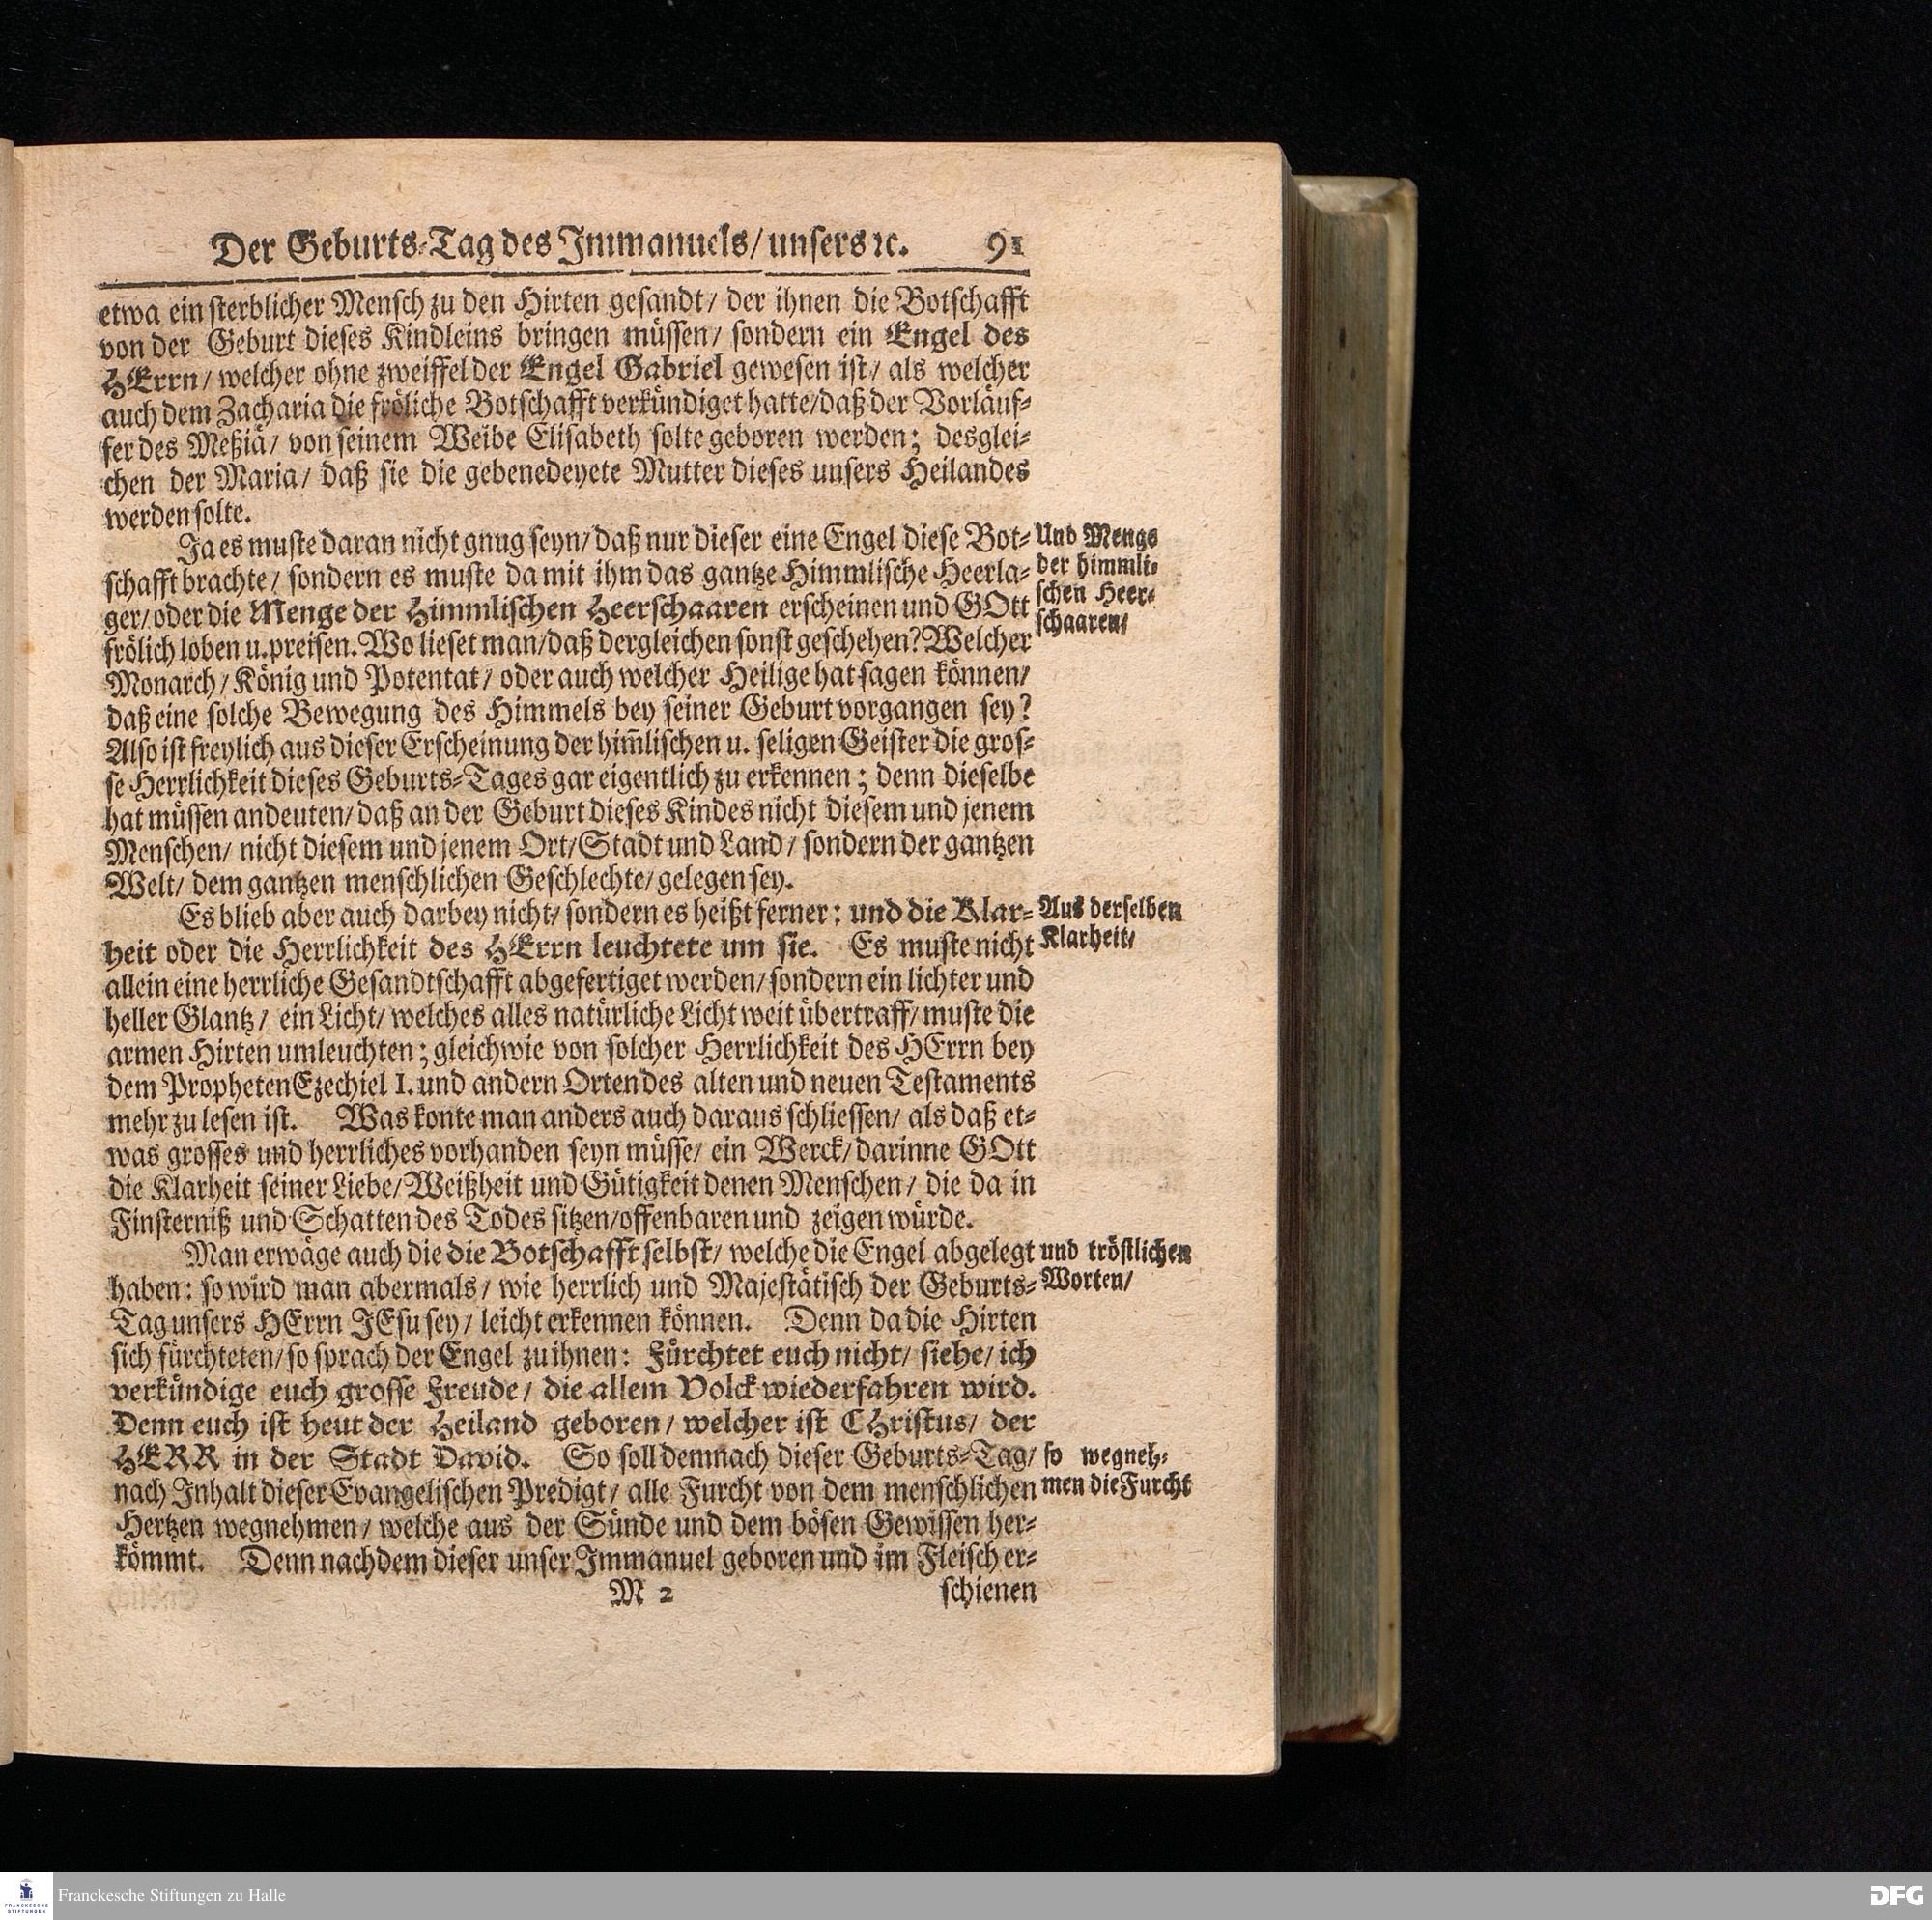 Der Geburts-Tag des Immanuels/ unsers ꝛc. 91
etwa ein sterblicher Mensch zu den Hirten gesandt/ der ihnen die Botschafft
von der Geburt dieses Kindleins bringen müssen/ sondern ein Engel des
HErrn/ welcher ohne zweiffel der Engel Gabriel gewesen ist/ als welcher
auch dem Zacharia die fröliche Botschafft verkündiget hatte/ daß der Vorläuf-
fer des Meßiä/ von seinem Weibe Elisabeth solte geboren werden; desglei-
chen der Maria/ daß sie die gebenedeyete Mutter dieses unsers Heilandes
werden solte.
Ja es muste daran nicht gnug seyn/ daß nur dieser eine Engel diese Bot-
schafft brachte/ sondern es muste da mit ihm das gantze Himmlische Heerla-
ger/ oder die Menge der Himmlischen Heerschaaren erscheinen und GOtt
frölich loben u. preisen. Wo lieset man/ daß dergleichen sonst geschehen? Welcher
Monarch/ König und Potentat/ oder auch welcher Heilige hat sagen können/
daß eine solche Bewegung des Himmels bey seiner Geburt vorgangen sey?
Also ist freylich aus dieser Erscheinung der him̃lischen u. seligen Geister die gros-
se Herrlichkeit dieses Geburts-Tages gar eigentlich zu erkennen; denn dieselbe
hat müssen andeuten/ daß an der Geburt dieses Kindes nicht diesem und jenem
Menschen/ nicht diesem und jenem Ort/ Stadt und Land/ sondern der gantzen
Welt/ dem gantzen menschlichen Geschlechte/ gelegen sey.
Und Menge
der himmli-
schen Heer-
schaaren/
Es blieb aber auch darbey nicht/ sondern es heißt ferner: und die Klar-
heit oder die Herrlichkeit des HErrn leuchtete um sie. Es muste nicht
allein eine herrliche Gesandtschafft abgefertiget werden/ sondern ein lichter und
heller Glantz/ ein Licht/ welches alles natürliche Licht weit übertraff/ muste die
armen Hirten umleuchten; gleichwie von solcher Herrlichkeit des HErrn bey
dem Propheten Ezechiel I. und andern Orten des alten und neuen Testaments
mehr zu lesen ist. Was konte man anders auch daraus schliessen/ als daß et-
was grosses und herrliches vorhanden seyn müsse/ ein Werck/ darinne GOtt
die Klarheit seiner Liebe/ Weißheit und Gütigkeit denen Menschen/ die da in
Finsterniß und Schatten des Todes sitzen/ offenbaren und zeigen würde.
Aus derselben
Klarheit/
Man erwäge auch die die Botschafft selbst/ welche die Engel abgelegt
haben: so wird man abermals/ wie herrlich und Majestätisch der Geburts-
Tag unsers HErrn JEsu sey/ leicht erkennen können. Denn da die Hirten
sich fürchteten/ so sprach der Engel zu ihnen: Fürchtet euch nicht/ siehe/ ich
verkündige euch grosse Freude/ die allem Volck wiederfahren wird.
Denn euch ist heut der Heiland geboren/ welcher ist CHristus/ der
HERR in der Stadt David. So soll demnach dieser Geburts-Tag/
nach Inhalt dieser Evangelischen Predigt/ alle Furcht von dem menschlichen
Hertzen wegnehmen/ welche aus der Sünde und dem bösen Gewissen her-
kömmt. Denn nachdem dieser unser Immanuel geboren und im Fleisch er-
und tröstlichen
Worten/
so wegneh-
men die Furcht
M 2 schienen
Franckesche Stiftungen zu Halle
FRANCKESCHE
STIFTUNGEN
DFG